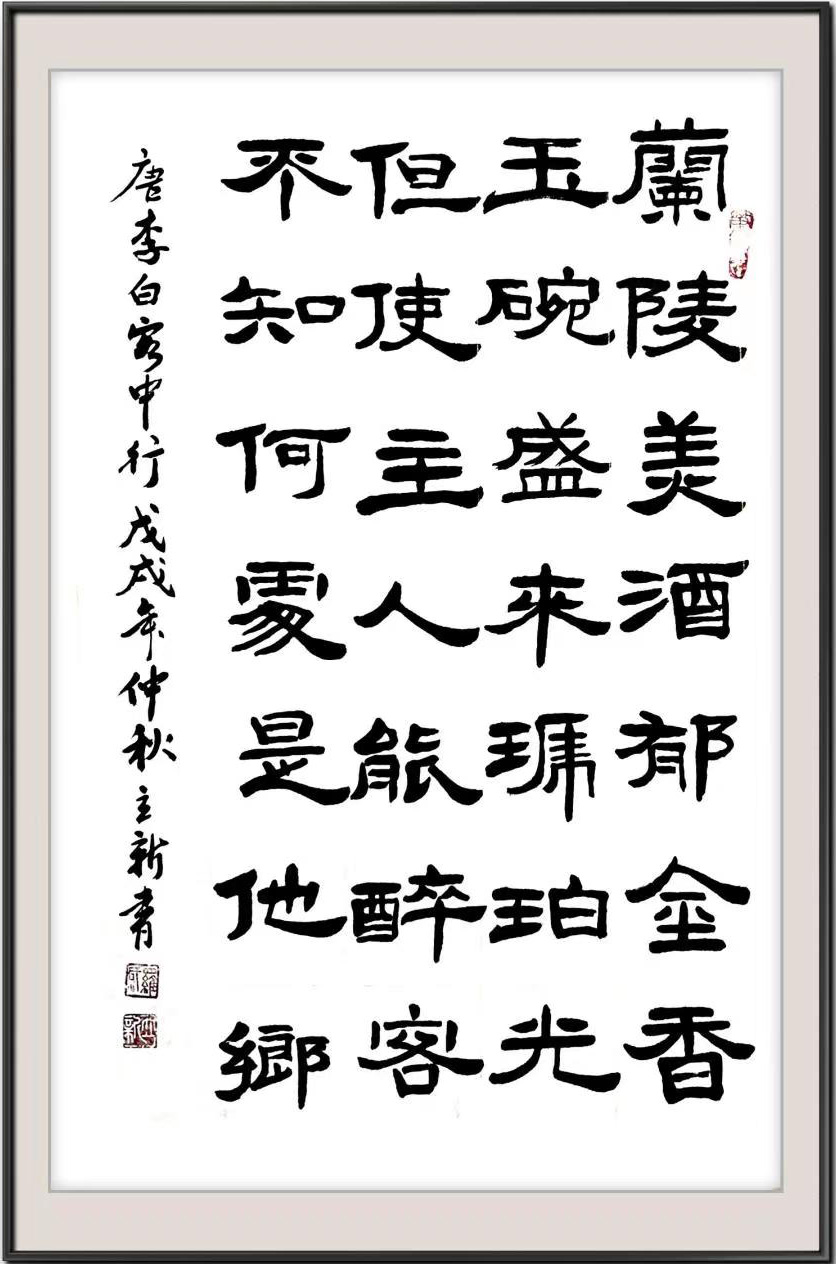 蘭陵美酒郁金香
玉碗盛來琥珀光
但使主人能醉客
不知何處是他鄉
唐李白客中行戊戌年仲秋立新書